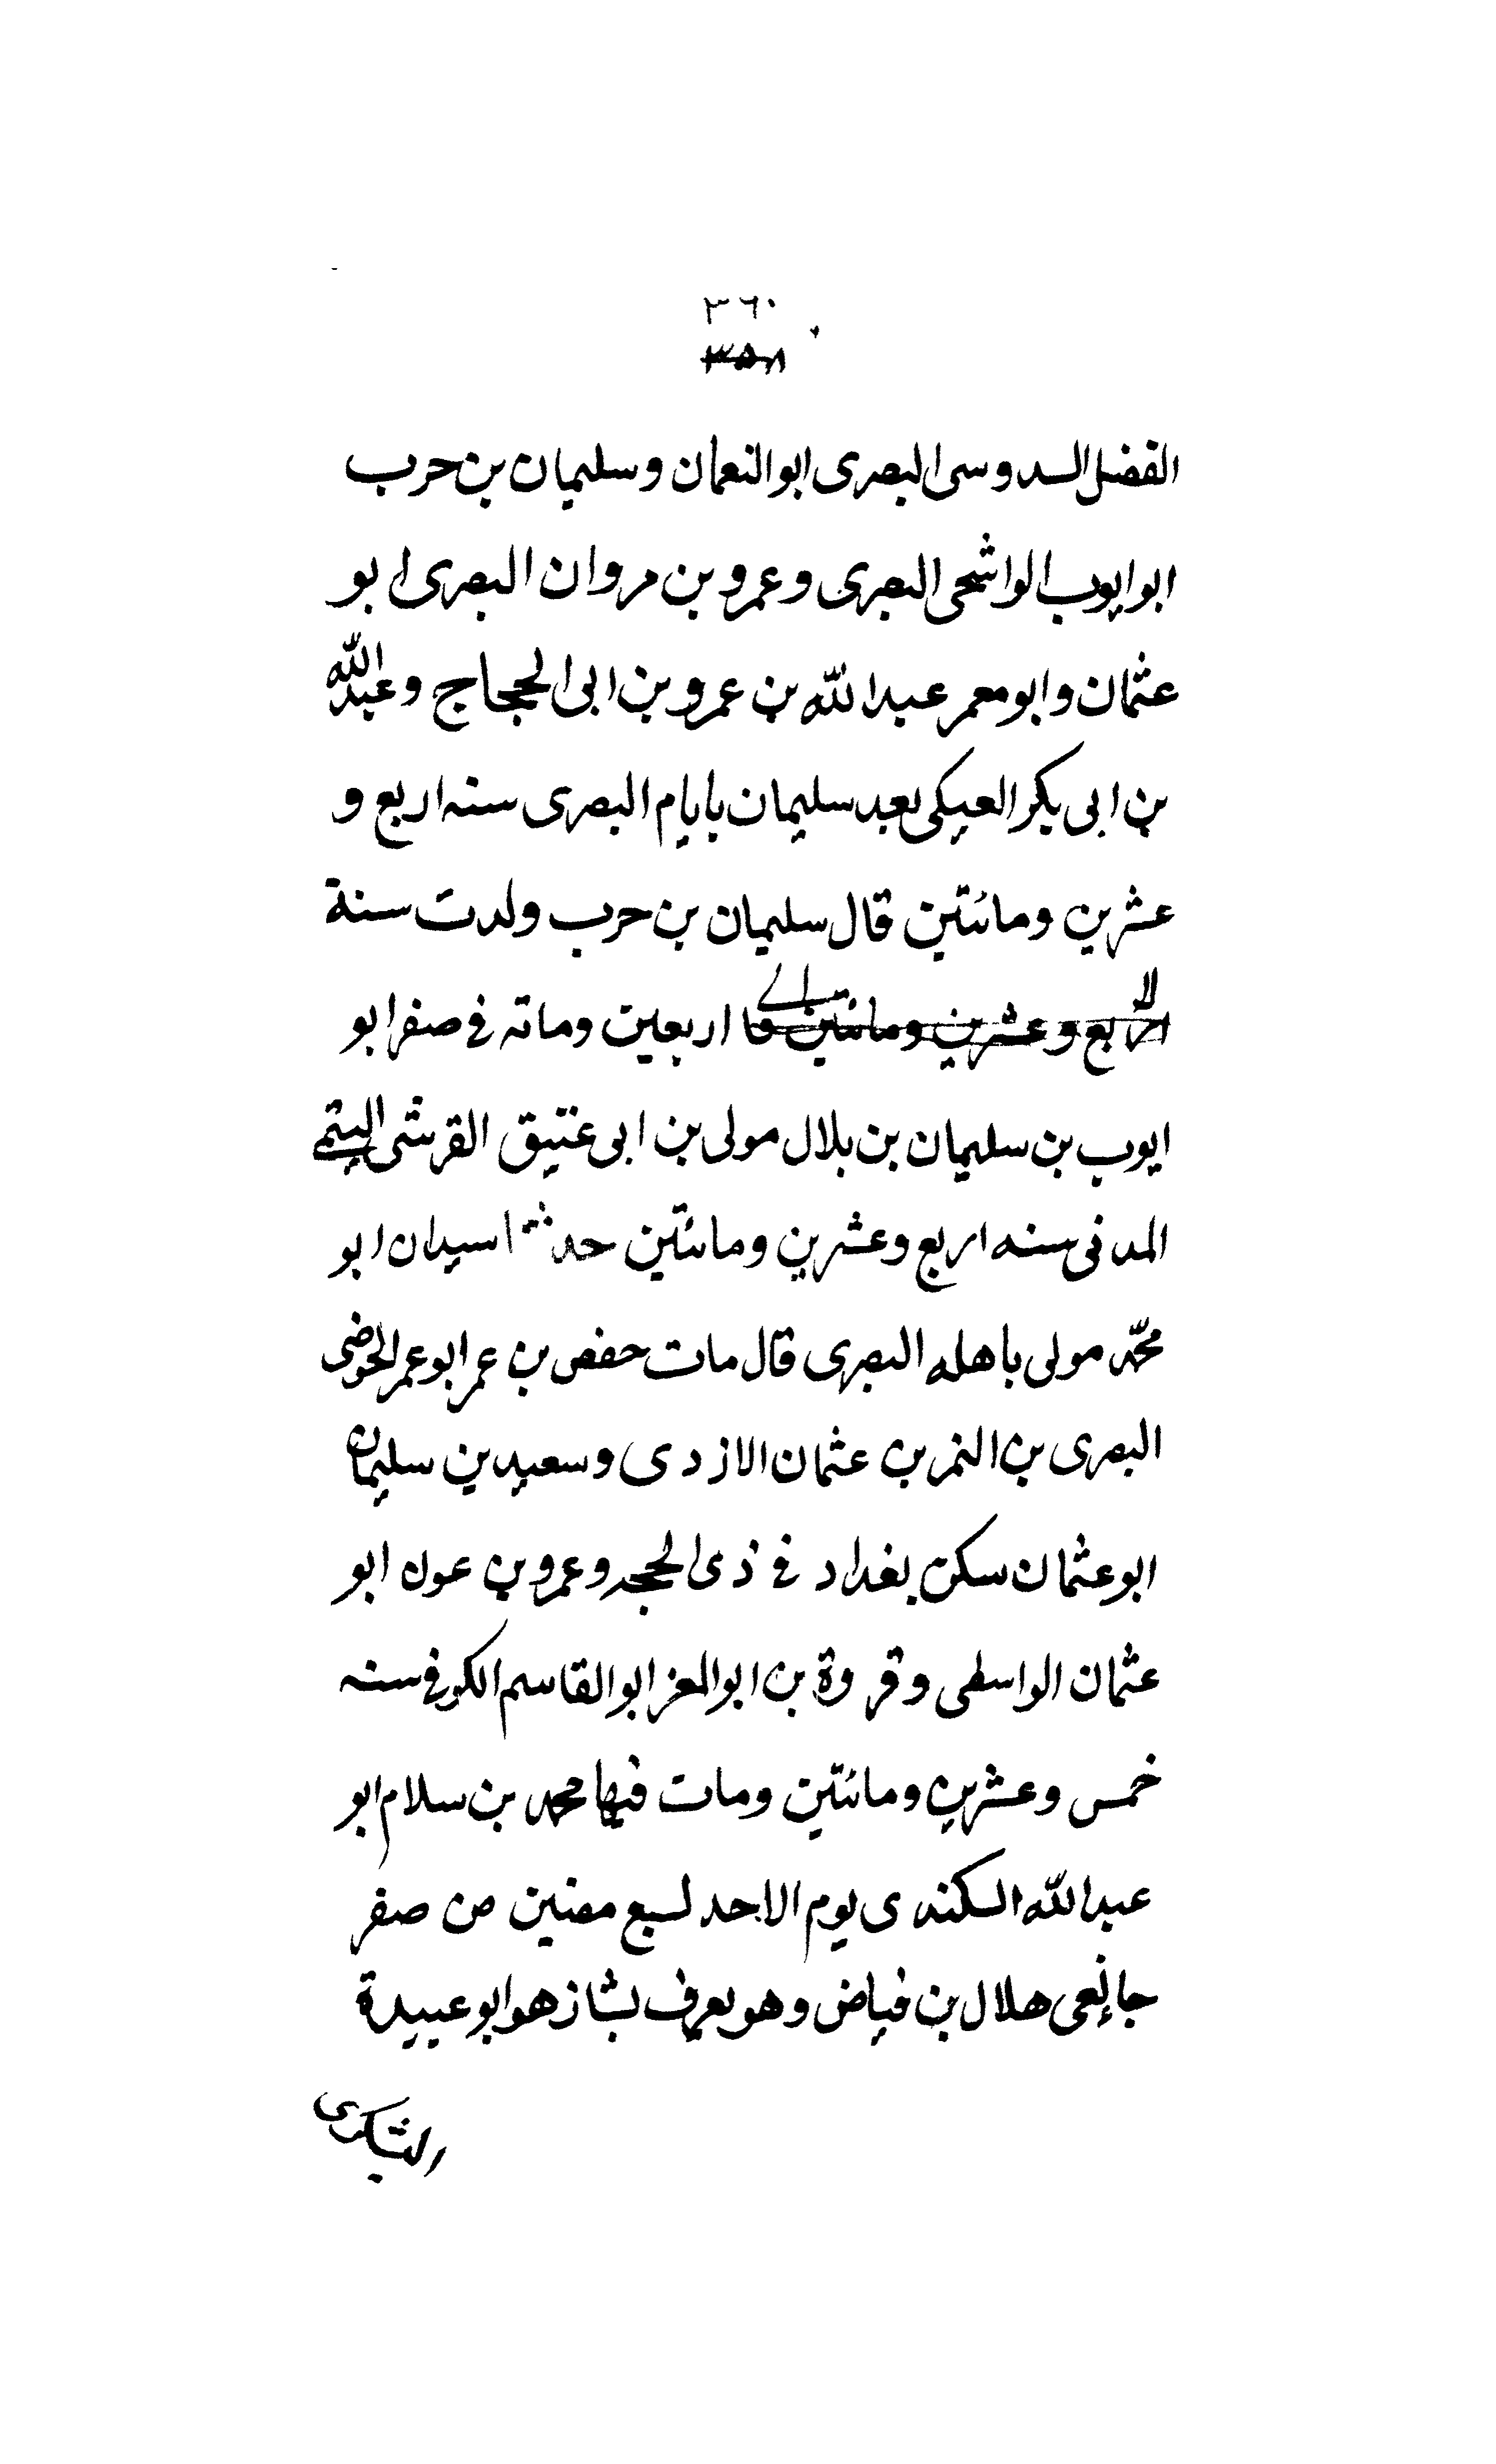 ٣٦٠
٣٥٨
الفضل السدوسى البصرى ابو النعمان وسليمان بن حرب
ابو ايوب الواشحى البصرى وعمرو بن مروان البصرى ابو
عثمان وابو معمر عبد الله بن عمرو بن ابى الحجاج وعبد الله
بن ابى بكر العيكى بعد سليمان بايام البصرى سنه اربع و
عشرين ومائتين قال سليمان بن حرب ولدت سنة
اربع وعشرين ومائتين قا اربعين وماته فى صفر ابو
ايوب بن سليمان بن بلال مولى بن ابى عتيق القرشى اليتمى
المدنى سنه اربع وعشرين ومائتين حدثنا سيدان ابو
محمّد مولى باهله البصرى قال مات حفص بن عمر ابو عمر الحوضى
البصرى بن النمر بن عثمان الازدى وسعيد بن سليمان
ابو عثمان سكن بغداد فى ذى الحجه وعمرو بن عون ابو
عثمان الواسطى وقروة بن ابو المغر ابو القاسم الكوفى سنه
خمس وعشرين ومائتين ومات فيها محمد بن سلام ابو
عبد الله السكندى يوم الاحد لسبع مضين من صفر
جا نعى هلال بن فياض وهو يعرف بشاذ هو ابو عبيدة
اليشكرى